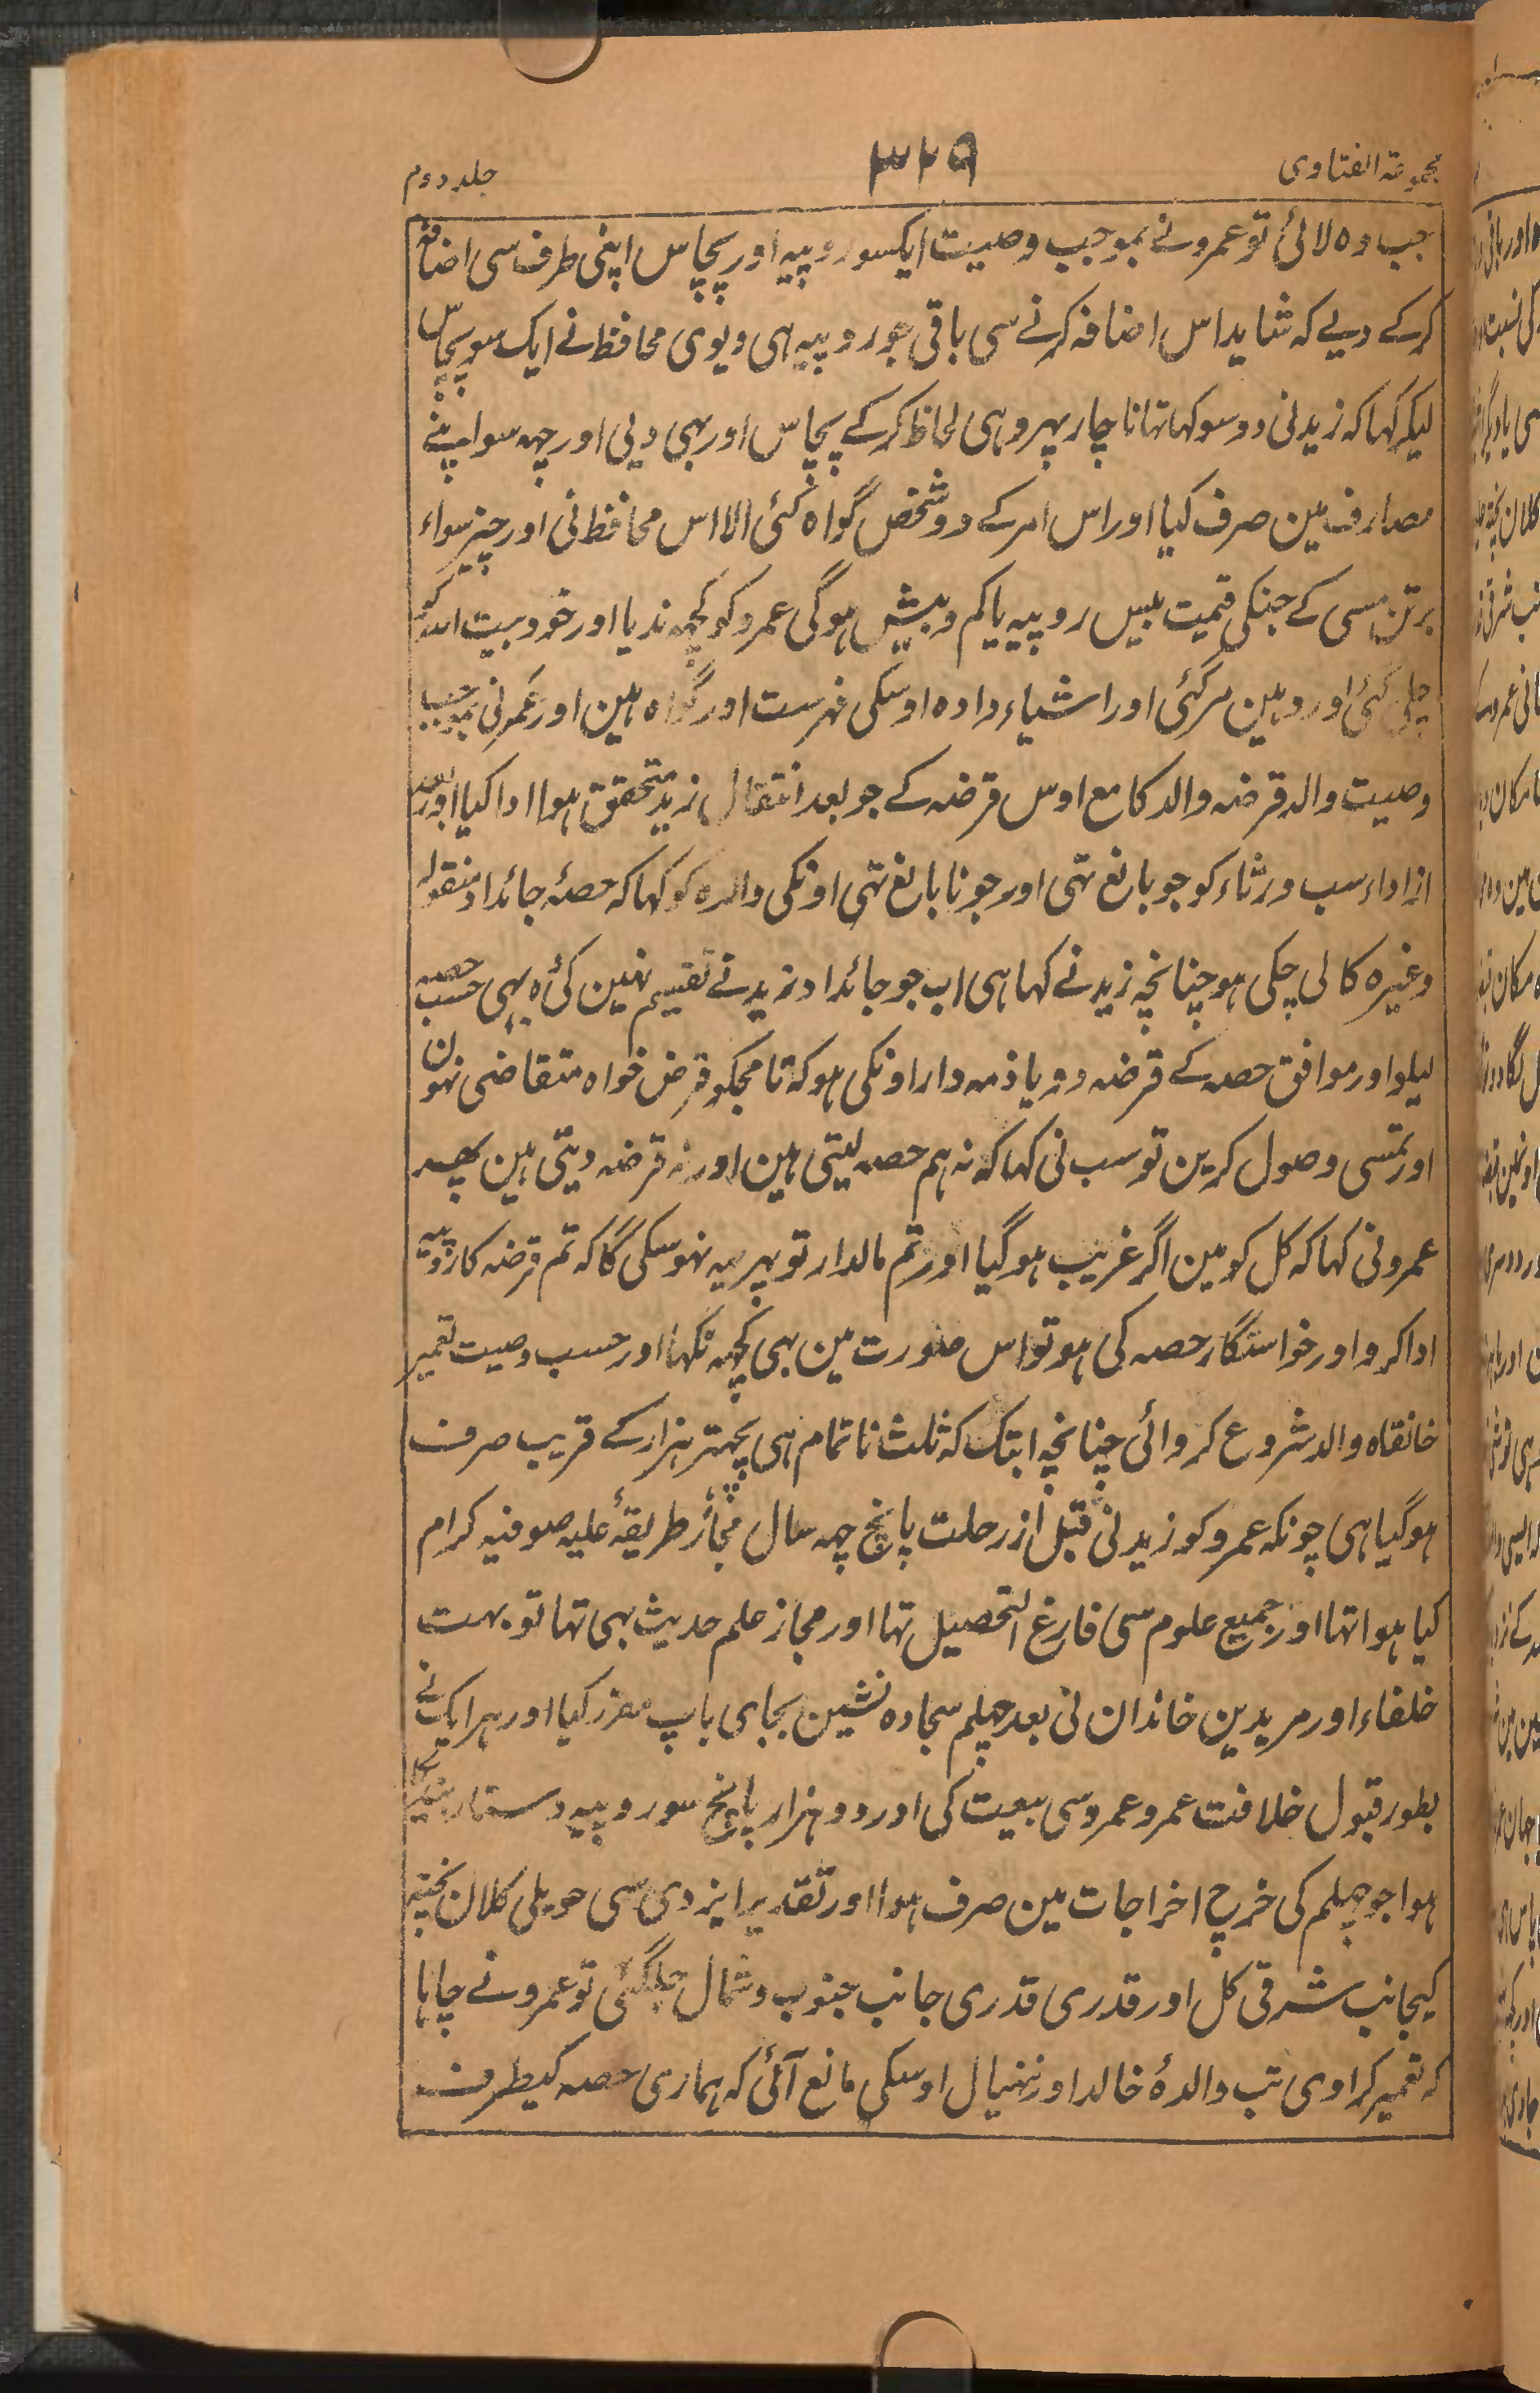 مجموعۃ الفتاوی
۳۲۹
جلد دوم
جب وہ لائی تو عمرو نے بموجب وصیت ایکسو روپیہ اور پچاس اپنی طرف سی اضافہ
کرکے دیے کہ شاید اس اضافہ کرنے سی باقی جو روپیہ ہی دیوی محافظ نے ایک سو پچاس
لیکر کہا کہ زید نی دو سو کہا تہا ناچار پہر وہی لحاظ کرکے پچاس اور بہی دیی اور چہہ سو اپنے
مصارف مین صرف کیا اور اس امر کے دو شخص گواہ کئی الا اس محافظ نی اور چیز سواء
برتن مسی کے جنکی قیمت بیس روپیہ یا کم و بیش ہوگی عمرو کو کچہہ ندیا اور خود بیت اللہ کو
چلی گئی اور وہین مرگئی اور اشیاء دادہ اوسکی فہرست اور گواہ ہین اور عمرو نی بموجب
وصیت والد قرضہ والد کا مع اوس قرضہ کے جو بعد انتقال زید متحقق ہوا ادا کیا اور بعد
از اداء سب ورثاء کو جو بالغ تہی اور جو نابالغ تہی اونکی والدہ کو کہا کہ حصۂ جائداد منقولہ
وغیرہ کا لی چکی ہو چنانچہ زید نے کہا ہی اب جو جائداد زید نے تقسیم نہین کی وہ بہی حسب حصہ
لیلو اور موافق حصہ کے قرضہ دو یا ذمہ دار اونکی ہو کہ تا مجکو قرض خواہ متقاضی نہون
اور تمسی وصول کرین تو سب نی کہا کہ نہ ہم حصہ لیتی ہین اور نہ قرضہ دیتی ہین پھر
عمرو نی کہا کہ کل کو مین اگر غریب ہو گیا اور تم مالدار تو پہر یہ نہو سکی گا کہ تم قرضہ کا روپیہ
ادا کرو اور خواستگار حصہ کی ہو تو اس صورت مین بہی کچہہ نکہا اور حسب وصیت تعمیر
خانقاہ والد شروع کروائی چنانچہ ابتک کہ ثلث ناتمام ہی پچہتر ہزار کے قریب صرف
ہو گیا ہی چونکہ عمرو کو زید نی قبل از رحلت پانچ چہہ سال مجاز طریقۂ علیہ صوفیہ کرام
کیا ہوا تہا اور جمیع علوم سی فارغ التحصیل تہا اور مجاز علم حدیث بہی تہا تو بہت
خلفاء اور مریدین خاندان نی بعد چہلم سجادہ نشین بجای باپ مقرر کیا اور ہر ایک نے
بطور قبول خلافت عمرو عمرو سی بیعت کی اور دو ہزار پانچ سو روپیہ دستار
ہوا جو چہلم کی خرچ اخراجات مین صرف ہوا اور تقدیر ایزدی سی حویلی کلان پختہ
کیجانب شرقی کل اور قدری قدری جانب جنوب و شمال جلگئی تو عمرو نے چاہا
کہ تعمیر کراوی تب والدۂ خالد اور ننہیال اوسکی مانع آئی کہ ہماری حصہ کیطرف